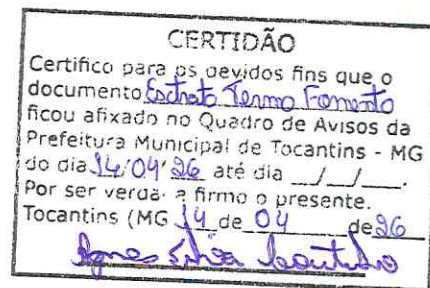 CERTIDÃO
Certifico para os devidos fins que o
documento Extrato Termo Fomento
ficou afixado no Quadro de Avisos da
Prefeitura Municipal de Tocantins - MG
do dia 14/04/26 até dia __/__/__.
Por ser verda- e firmo o presente.
Tocantins (MG 14 de 04 de 26
Agnes Silva Coutinho